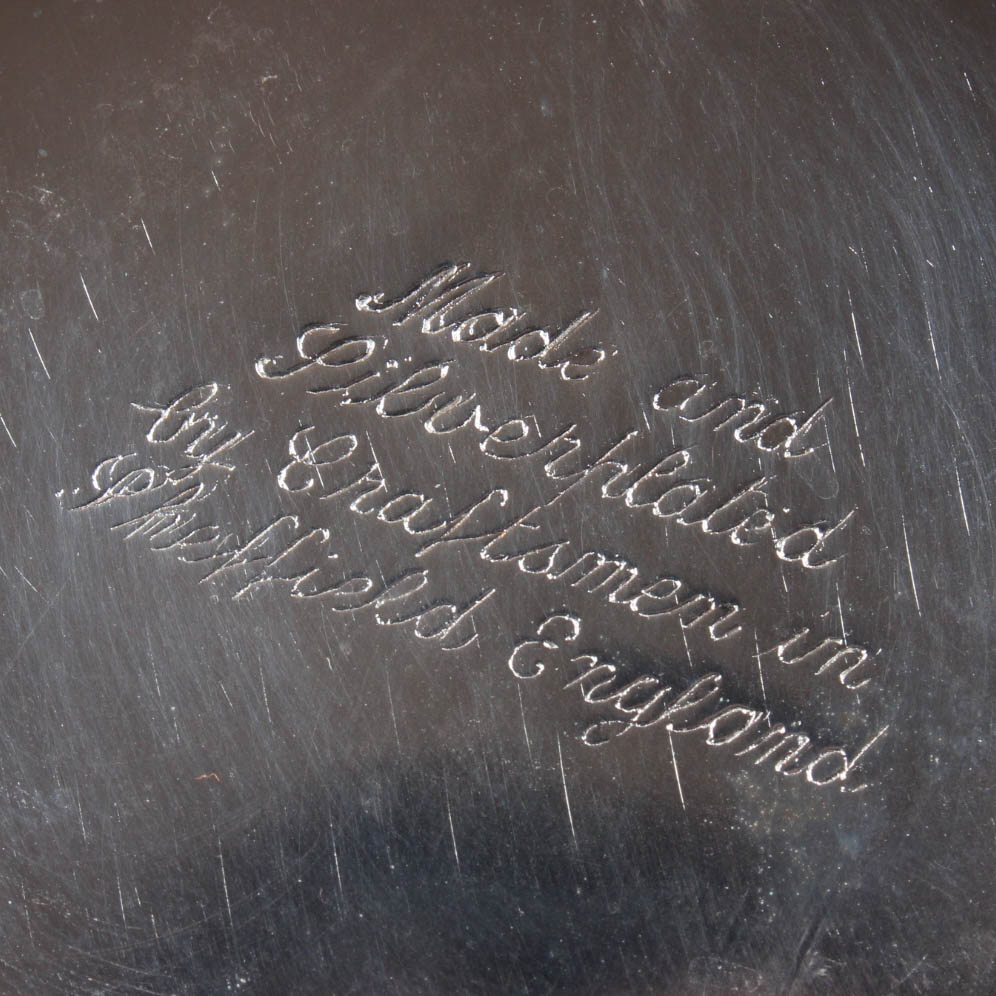 Made and
Silverplated
by Craftsmen in
Sheffield England